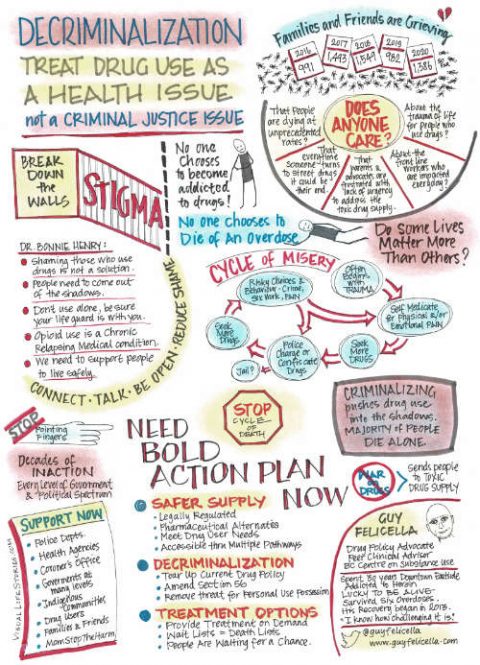 DECRIMINALIZATION
TREAT DRUG USE AS
A HEALTH ISSUE
not a CRIMINAL JUSTICE ISSUE
Families and Friends are Grieving
2016
991
2017
1,493
2018
1,549
2019
982
2020
1,386
DOES
ANYONE
CARE?
That People
are dying at
unprecedented
rates?
That
everytime
someone turns
to street drugs
it could be
their end.
That
parents &
advocates are
frustrated with
lack of urgency
to address the
toxic drug supply.
About the
front line
workers who
are impacted
everyday?
About the
trauma of life
for people who
use drugs?
BREAK
DOWN
the
WALLS
STIGMA
No one
chooses
to become
addicted
to drugs!
No one chooses to
Die of An Overdose
Do Some Lives
Matter More
Than Others?
DR. BONNIE HENRY:
Shaming those who use
drugs is not a solution.
People need to come out
of the shadows.
Don't use alone, be sure
your life guard is with you.
Opioid use is a Chronic
Relapsing Medical condition.
We need to support people
to live safely.
CONNECT · TALK · BE OPEN · REDUCE SHAME
CYCLE OF MISERY
Often
Begins
with
TRAUMA
Self Medicate
for Physical &/or
Emotional PAIN
Seek
MORE
DRUGS
Police
Charge or
Confiscate
Drugs
Jail?
Seek
More
Drugs
Risky Choices &
Behaviour - Crime,
Sex Work, PAIN
STOP
CYCLE
OF
DEATH
CRIMINALIZING
pushes drug use
into the shadows.
MAJORITY OF PEOPLE
DIE ALONE.
STOP
Pointing
Fingers
Decades of
INACTION
Every Level of Government
& Political Spectrum
NEED
BOLD
ACTION PLAN
NOW
WAR
ON
DRUGS
sends people
to TOXIC
DRUG SUPPLY
SUPPORT NOW
Police Depts.
Health Agencies
Coroner's Office
Governments at
many levels
Indigenous
Communities
Drug Users
Families & Friends
MomsStopTheHarm
VISUALLIFESTORIES.COM
SAFER SUPPLY
- Legally Regulated
- Pharmaceutical Alternates
- Meet Drug User Needs
- Accessible thru Multiple Pathways
DECRIMINALIZATION
- Tear Up Current Drug Policy
- Amend Section 56
- Remove threat for Personal Use Possession
TREATMENT OPTIONS
- Provide Treatment on Demand
- Wait Lists = Death Lists
- People Are Waiting for a Chance.
GUY
FELICELLA
Drug Policy Advocate
Peer Clinical Advisor
BC Centre on Substance Use
Spent 30 years Downtown Eastside
Addicted to Heroin
LUCKY TO BE ALIVE-
Survived Six Overdoses.
His Recovery began in 2013.
"I know how challenging it is."
@guyfelicella
www.guyfelicella.com